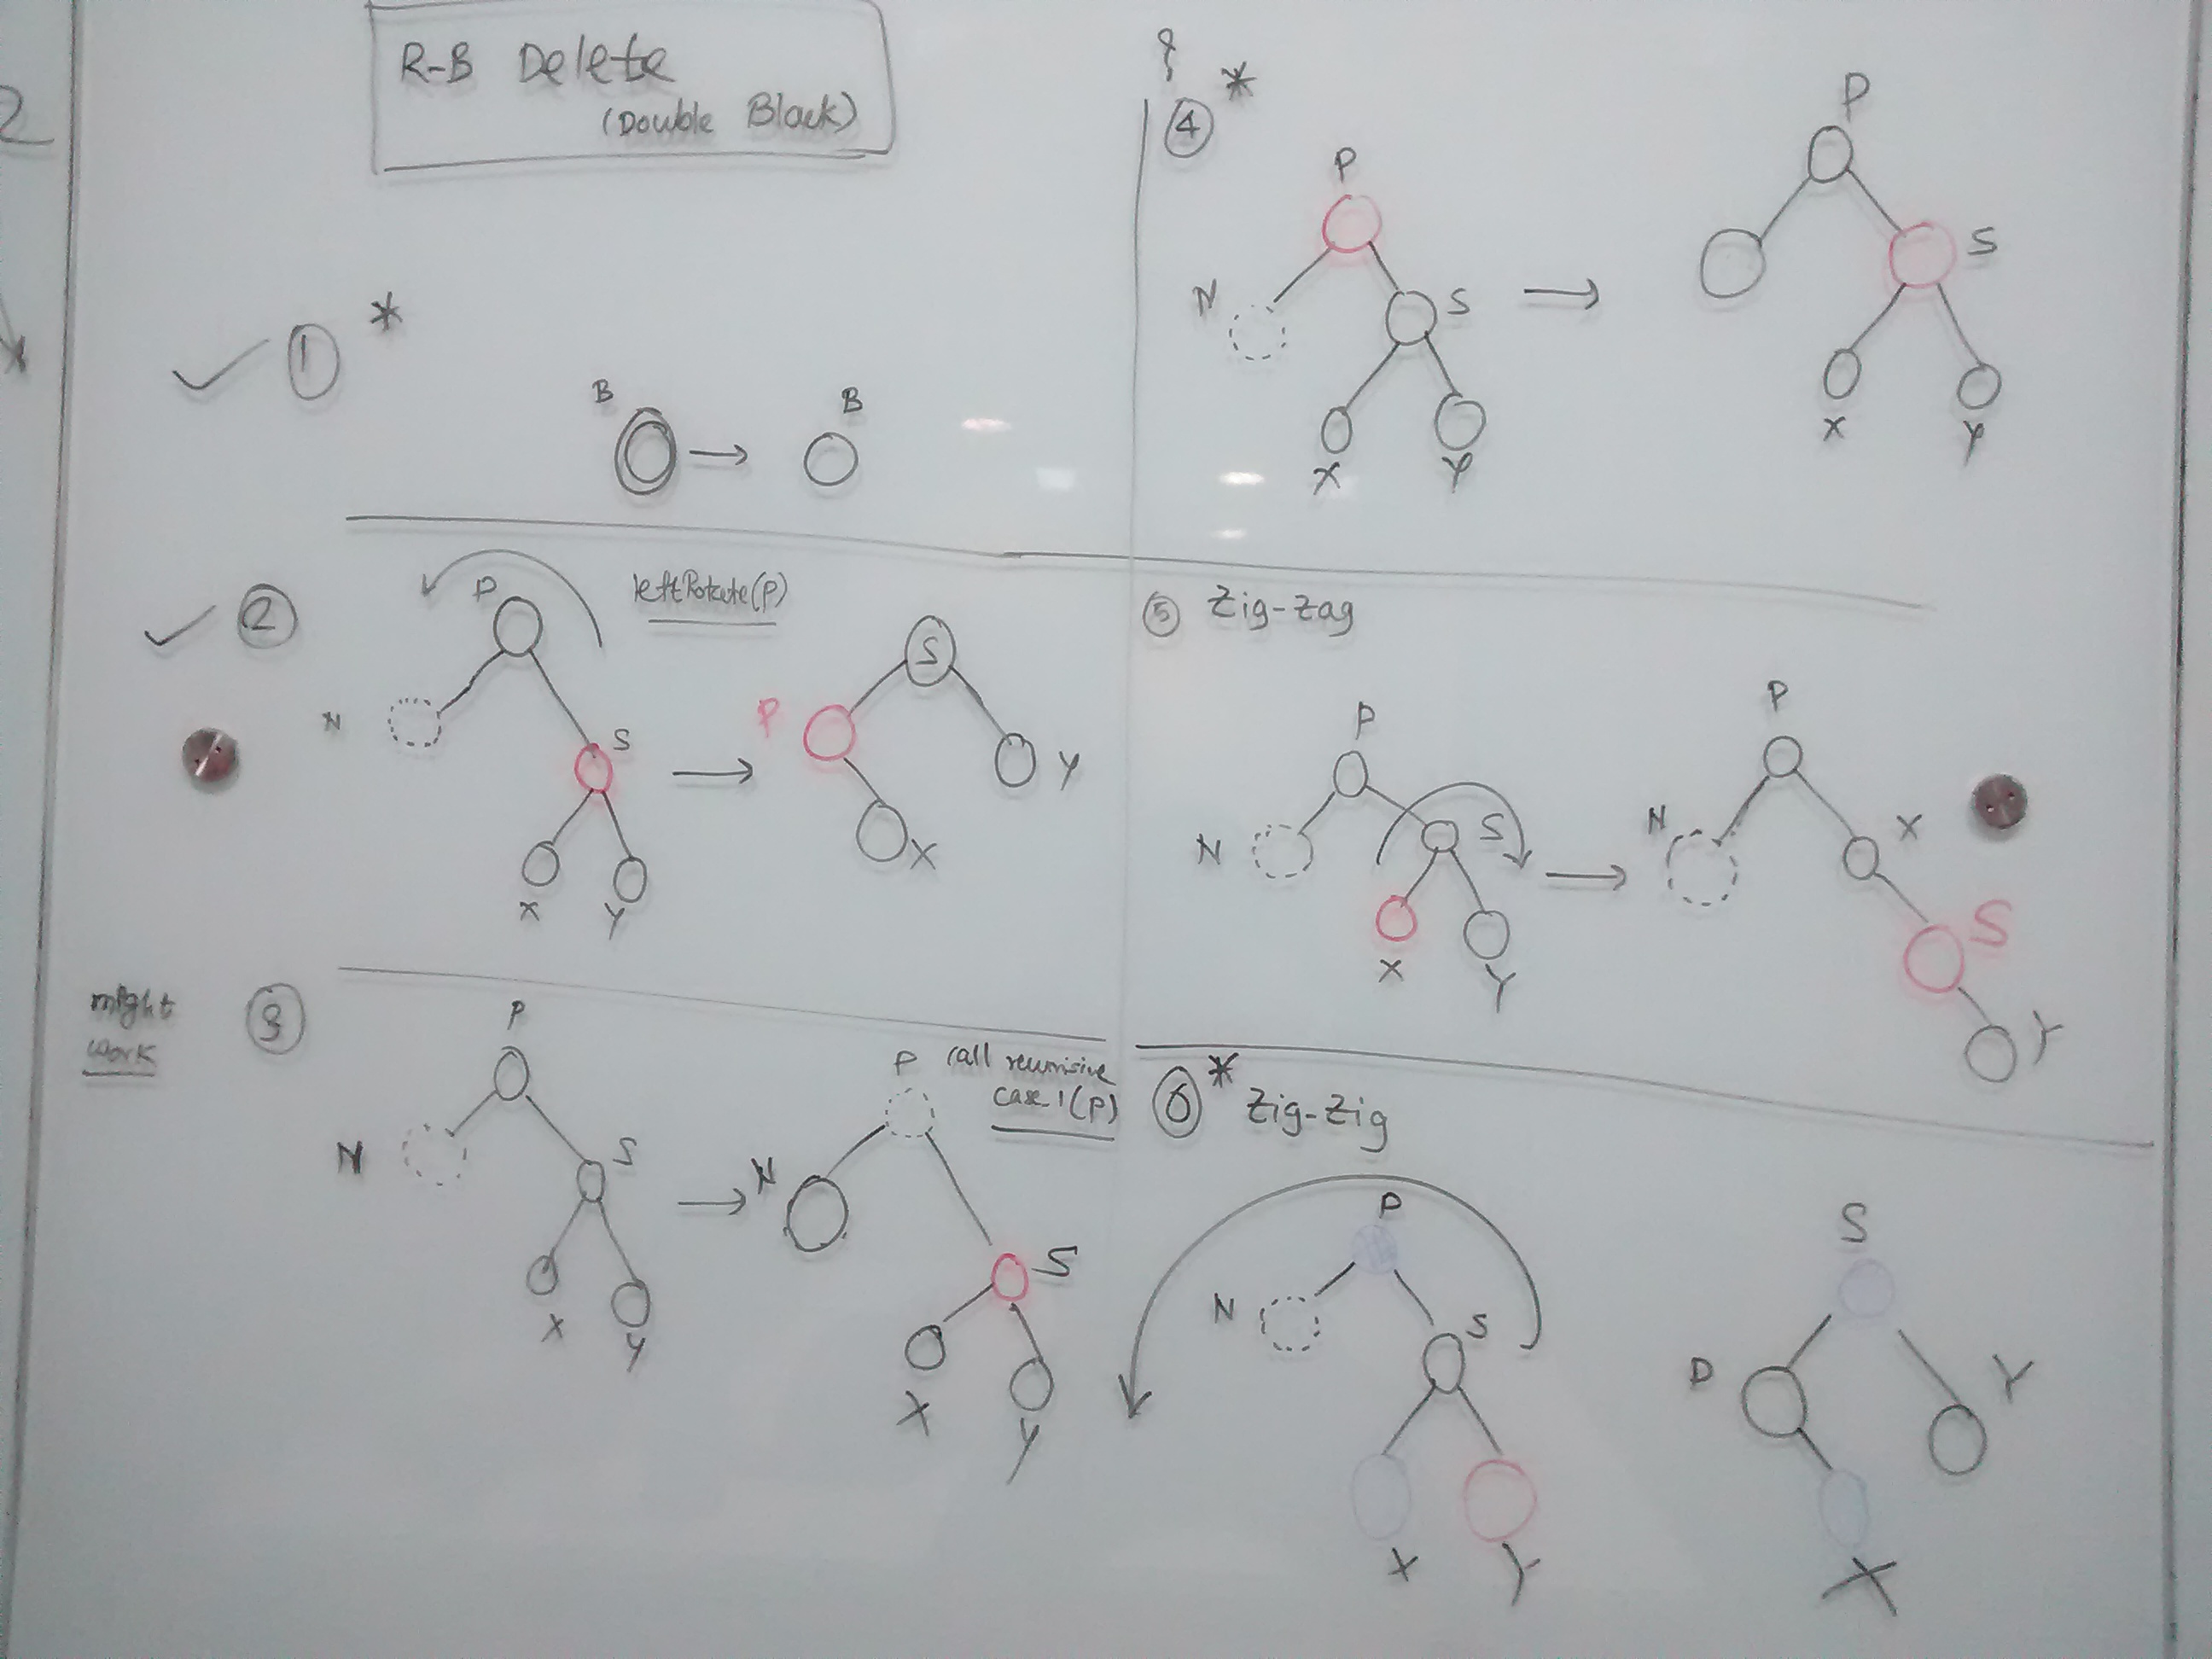 R-B Delete
(Double Black)
2
x
✓ ① *
B
B
✓ ②
P
leftRotate(P)
N
S
X
Y
S
P
Y
X
might
work
③
P
N
S
X
Y
P
call recursive
case_1(P)
N
S
X
Y
④ *
P
N
S
X
Y
P
S
X
Y
⑤ Zig-Zag
P
N
S
X
Y
P
N
X
S
Y
⑥ * Zig-Zig
P
N
S
X
Y
S
P
Y
X